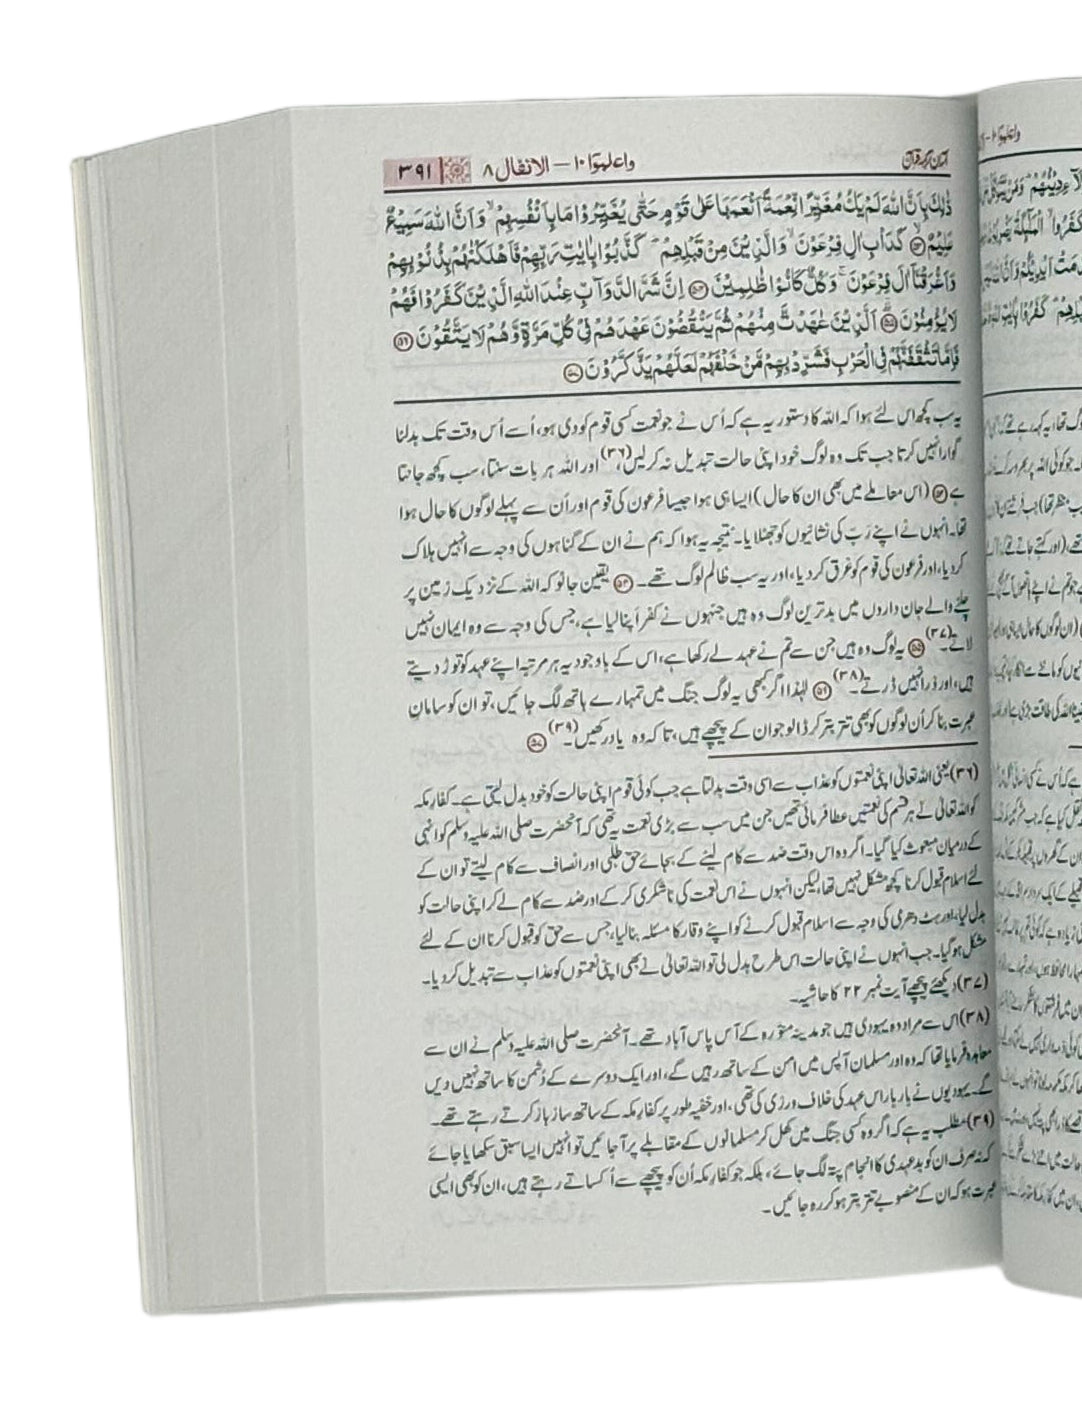 آسان ترجمۂ قرآن
واعلموٓا ۱۰ — الانفال ۸
۳۹۱
ذٰلِكَ بِاَنَّ اللّٰهَ لَمْ يَكُ مُغَيِّرًا نِّعْمَةً اَنْعَمَهَا عَلٰى قَوْمٍ حَتّٰى يُغَيِّرُوْا مَا بِاَنْفُسِهِمْ ۙ وَاَنَّ اللّٰهَ سَمِيْعٌ
عَلِيْمٌ ۵۳ كَدَاْبِ اٰلِ فِرْعَوْنَ ۙ وَالَّذِيْنَ مِنْ قَبْلِهِمْ ؕ كَذَّبُوْا بِاٰيٰتِ رَبِّهِمْ فَاَهْلَكْنٰهُمْ بِذُنُوْبِهِمْ
وَاَغْرَقْنَاۤ اٰلَ فِرْعَوْنَ ۚ وَكُلٌّ كَانُوْا ظٰلِمِيْنَ ۵۴ اِنَّ شَرَّ الدَّوَآبِّ عِنْدَ اللّٰهِ الَّذِيْنَ كَفَرُوْا فَهُمْ
لَا يُؤْمِنُوْنَ ۵۵ اَلَّذِيْنَ عٰهَدْتَّ مِنْهُمْ ثُمَّ يَنْقُضُوْنَ عَهْدَهُمْ فِيْ كُلِّ مَرَّةٍ وَّهُمْ لَا يَتَّقُوْنَ ۵۶
فَاِمَّا تَثْقَفَنَّهُمْ فِي الْحَرْبِ فَشَرِّدْ بِهِمْ مَّنْ خَلْفَهُمْ لَعَلَّهُمْ يَذَّكَّرُوْنَ ۵۷
یہ سب کچھ اس لئے ہوا کہ اللہ کا دستور یہ ہے کہ اُس نے جو نعمت کسی قوم کو دی ہو، اُسے اُس وقت تک بدلنا
گوارا نہیں کرتا جب تک وہ لوگ خود اپنی حالت تبدیل نہ کرلیں،(۳۶) اور اللہ ہر بات سنتا، سب کچھ جانتا
ہے ۵۳ (اس معاملے میں بھی ان کا حال) ایسا ہی ہوا جیسا فرعون کی قوم اور اُن سے پہلے لوگوں کا حال ہوا
تھا۔ انہوں نے اپنے رَبّ کی نشانیوں کو جھٹلایا۔ نتیجہ یہ ہوا کہ ہم نے ان کے گناہوں کی وجہ سے انہیں ہلاک
کردیا، اور فرعون کی قوم کو غرق کردیا، اور یہ سب ظالم لوگ تھے۔ ۵۴ یقین جانو کہ اللہ کے نزدیک زمین پر
چلنے والے جان داروں میں بدترین لوگ وہ ہیں جنہوں نے کفر اَپنا لیا ہے، جس کی وجہ سے وہ ایمان نہیں
لاتے۔(۳۷) ۵۵ یہ لوگ وہ ہیں جن سے تم نے عہد لے رکھا ہے، اس کے باوجود یہ ہر مرتبہ اپنے عہد کو توڑ دیتے
ہیں، اور ذرا نہیں ڈرتے۔(۳۸) ۵۶ لہٰذا اگر کبھی یہ لوگ جنگ میں تمہارے ہاتھ لگ جائیں، تو ان کو سامانِ
عبرت بنا کر اُن لوگوں کو بھی تتر بتر کر ڈالو جو ان کے پیچھے ہیں، تاکہ وہ یاد رکھیں۔(۳۹) ۵۷
(۳۶) یعنی اللہ تعالیٰ اپنی نعمتوں کو عذاب سے اسی وقت بدلتا ہے جب کوئی قوم اپنی حالت کو خود بدل لیتی ہے۔ کفارِ مکہ
کو اللہ تعالیٰ نے ہر قسم کی نعمتیں عطا فرمائی تھیں جن میں سب سے بڑی نعمت یہ تھی کہ آنحضرت صلی اللہ علیہ وسلم کو انہی
کے درمیان مبعوث کیا گیا۔ اگر وہ اس وقت ضد سے کام لینے کے بجائے حق طلبی اور انصاف سے کام لیتے تو ان کے
لئے اسلام قبول کرنا کچھ مشکل نہیں تھا، لیکن انہوں نے اس نعمت کی ناشکری کرکے اور ضد سے کام لے کر اپنی حالت کو
بدل لیا، اور ہٹ دھرمی کی وجہ سے اسلام قبول کرنے کو اپنے وقار کا مسئلہ بنا لیا، جس سے حق کو قبول کرنا ان کے لئے
مشکل ہوگیا۔ جب انہوں نے اپنی حالت اس طرح بدل لی تو اللہ تعالیٰ نے بھی اپنی نعمتوں کو عذاب سے تبدیل کردیا۔
(۳۷) دیکھئے پیچھے آیت نمبر ۲۲ کا حاشیہ۔
(۳۸) اس سے مراد وہ یہودی ہیں جو مدینہ منوّرہ کے آس پاس آباد تھے۔ آنحضرت صلی اللہ علیہ وسلم نے ان سے
معاہدہ فرمایا تھا کہ وہ اور مسلمان آپس میں امن کے ساتھ رہیں گے، اور ایک دوسرے کے دُشمن کا ساتھ نہیں دیں
گے۔ یہودیوں نے بار بار اس عہد کی خلاف ورزی کی تھی، اور خفیہ طور پر کفارِ مکہ کے ساتھ ساز باز کرتے رہتے تھے۔
(۳۹) مطلب یہ ہے کہ اگر وہ کسی جنگ میں کھل کر مسلمانوں کے مقابلے پر آجائیں تو انہیں ایسا سبق سکھایا جائے
کہ نہ صرف ان کو بدعہدی کا انجام پتہ لگ جائے، بلکہ جو کفارِ مکہ اُن کو پیچھے سے اُکساتے رہتے ہیں، ان کو بھی ایسی
عبرت ہو کہ ان کے منصوبے تتر بتر ہو کر رہ جائیں۔